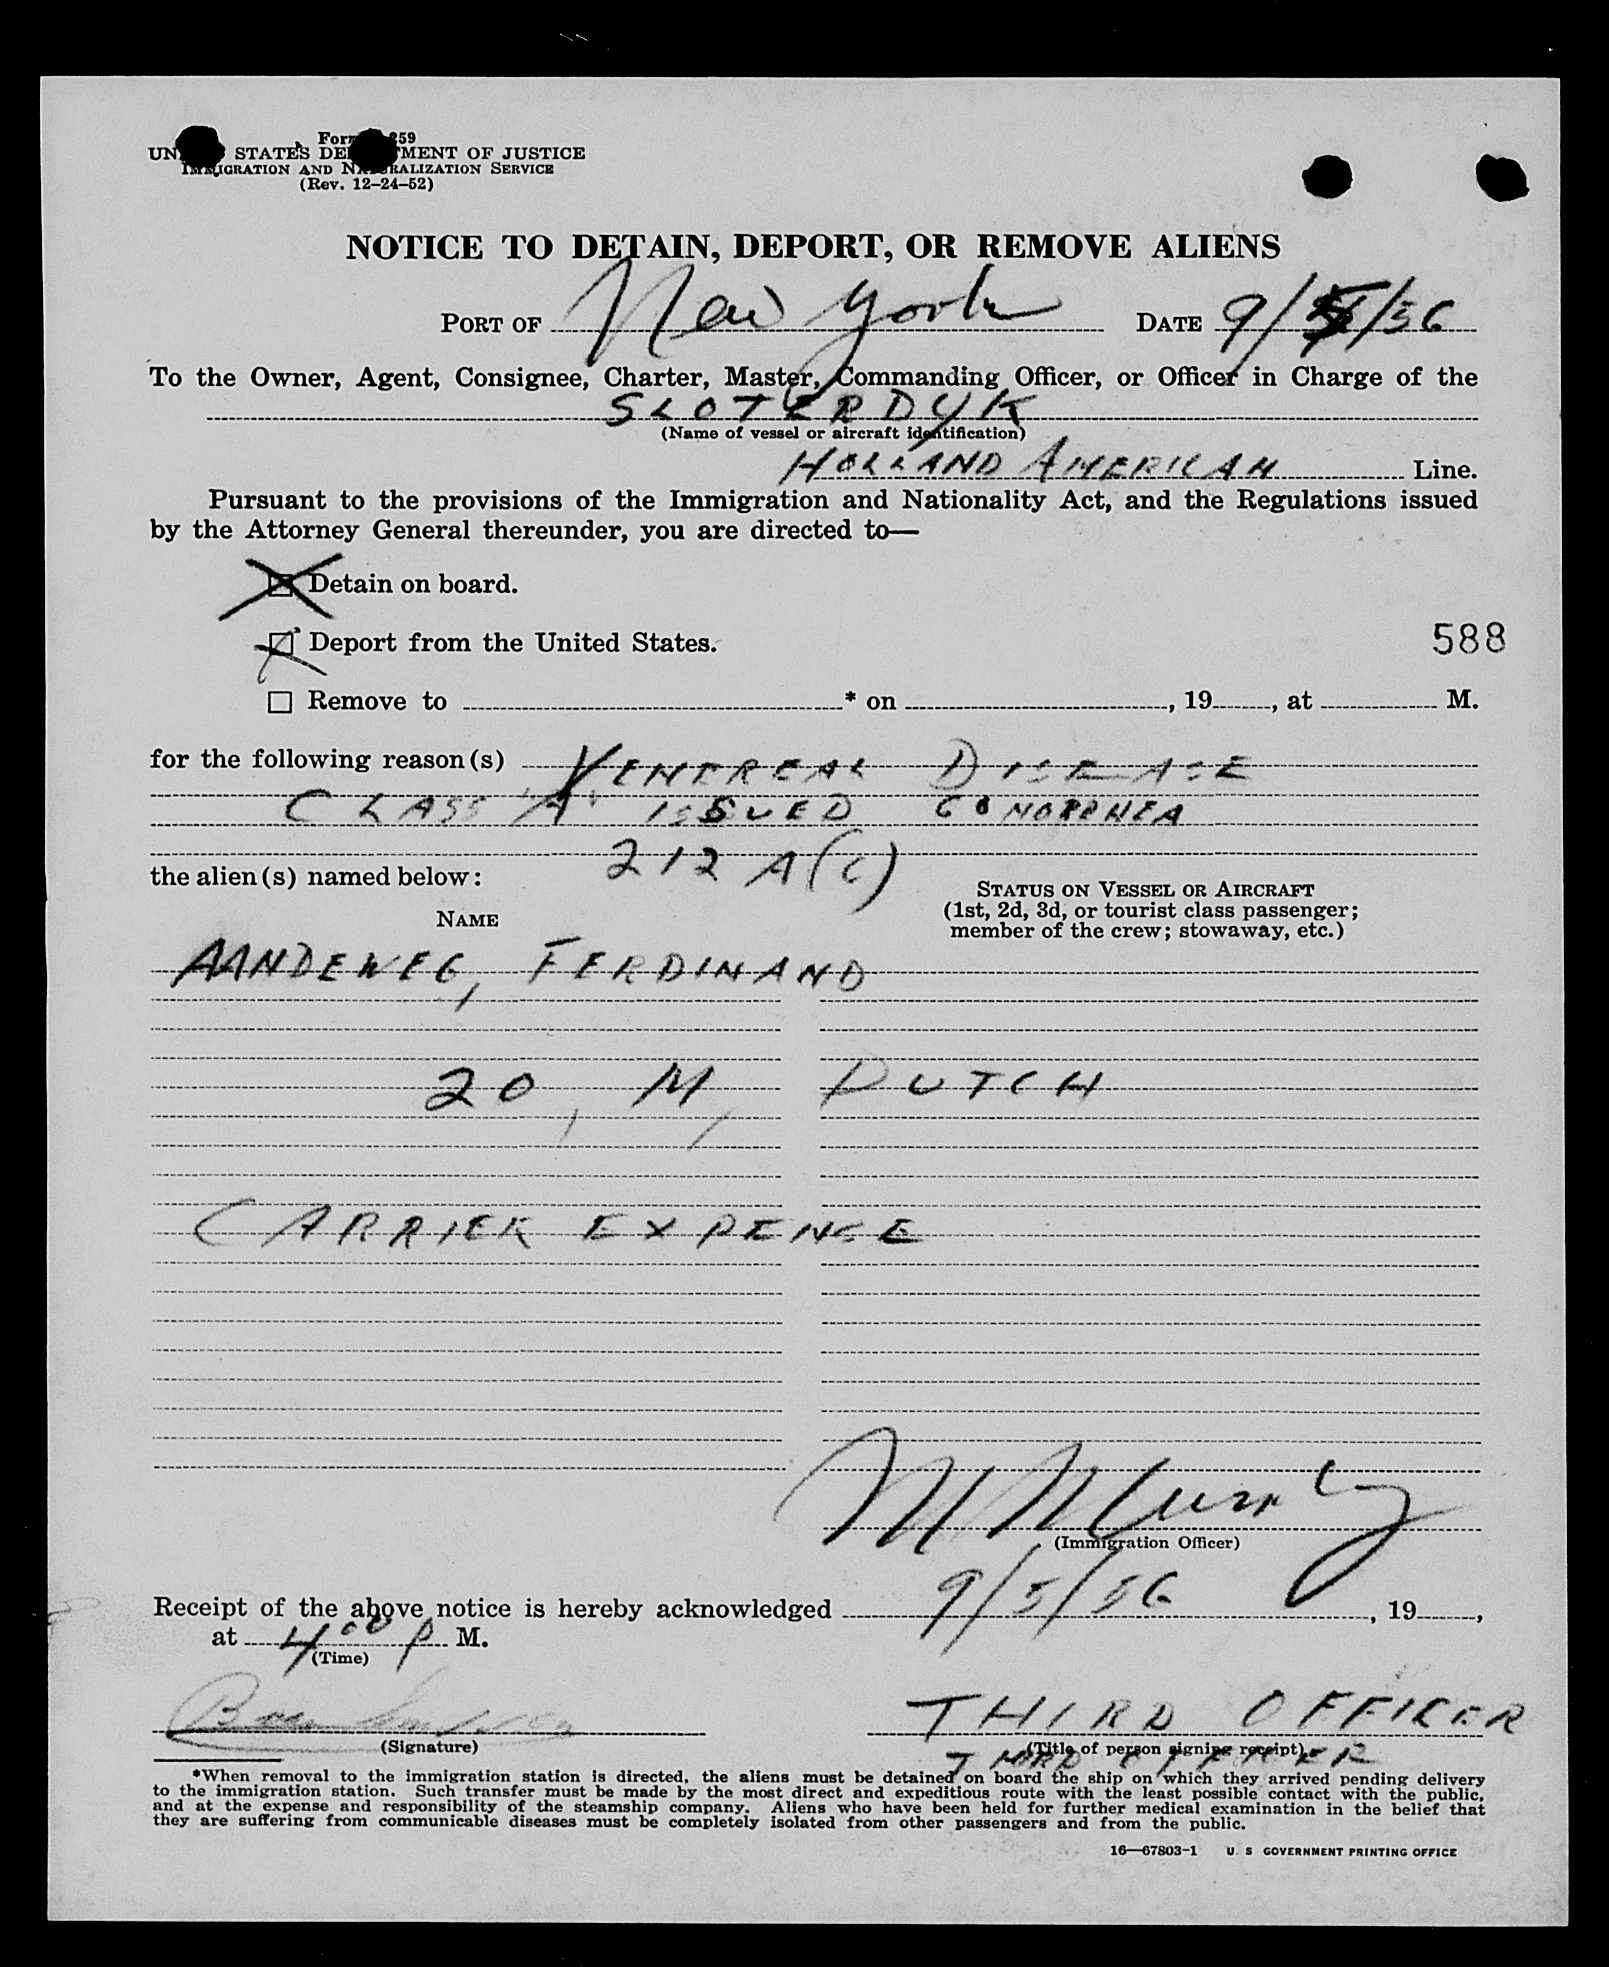 Form 259
UNITED STATES DEPARTMENT OF JUSTICE
IMMIGRATION AND NATURALIZATION SERVICE
(Rev. 12-24-52)
NOTICE TO DETAIN, DEPORT, OR REMOVE ALIENS
PORT OF New York DATE 9/5/56
To the Owner, Agent, Consignee, Charter, Master, Commanding Officer, or Officer in Charge of the
SLOTERDYK
(Name of vessel or aircraft identification)
HOLLAND AMERICAN Line.
Pursuant to the provisions of the Immigration and Nationality Act, and the Regulations issued
by the Attorney General thereunder, you are directed to—
☒ Detain on board.
☒ Deport from the United States.
588
☐ Remove to * on , 19 , at M.
for the following reason(s) VENEREAL DISEASE
CLASS "A" ISSUED GONORRHEA
212 A(6)
the alien(s) named below:
NAME
STATUS ON VESSEL OR AIRCRAFT
(1st, 2d, 3d, or tourist class passenger;
member of the crew; stowaway, etc.)
AANDEWEG, FERDINAND
20, M, DUTCH
CARRIER EXPENSE
M Murphy
(Immigration Officer)
Receipt of the above notice is hereby acknowledged 9/5/56 , 19 ,
at 4 00 P M.
(Time)
THIRD OFFICER
(Signature)
(Title of person signing receipt)
THIRD OFFICER
*When removal to the immigration station is directed, the aliens must be detained on board the ship on which they arrived pending delivery
to the immigration station. Such transfer must be made by the most direct and expeditious route with the least possible contact with the public,
and at the expense and responsibility of the steamship company. Aliens who have been held for further medical examination in the belief that
they are suffering from communicable diseases must be completely isolated from other passengers and from the public.
16—67803-1 U. S. GOVERNMENT PRINTING OFFICE